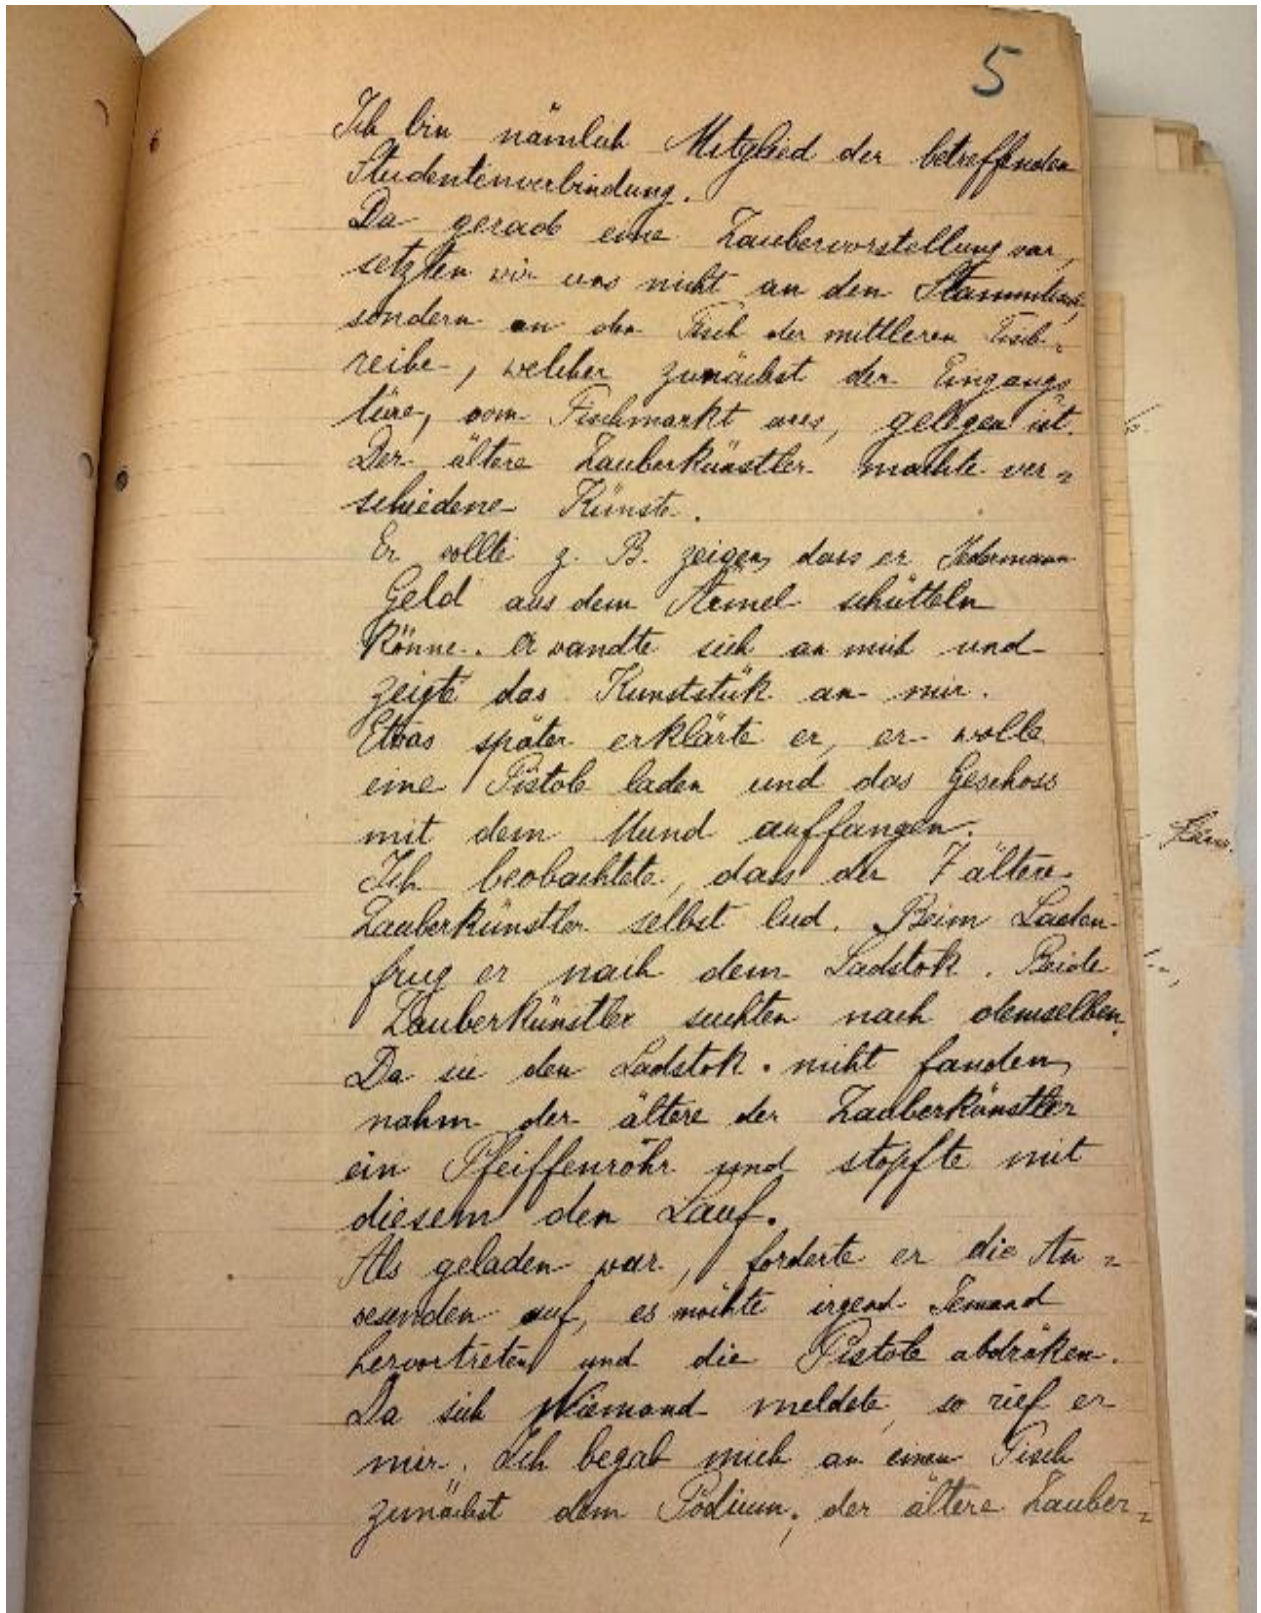 5
Ich bin nämlich Mitglied der betreffenden
Studentenverbindung.
Da gerade eine Zaubervorstellung war,
setzten wir uns nicht an den Stammtisch,
sondern an den Tisch der mittleren Tisch-
reihe, welcher zunächst der Eingangs
türe, vom Fischmarkt aus, gelegen ist.
Der ältere Zauberkünstler machte ver=
schiedene Künste.
Er wollte z. B. zeigen, dass er Jedermann
Geld aus dem Ärmel schütteln
könne. Er wandte sich an mich und
zeigte das Kunststük an mir.
Etwas später erklärte er, er wolle
eine Pistole laden und das Geschoss
mit dem Mund auffangen.
Ich beobachtete, dass der ältere
Zauberkünstler selbst lud. Beim Laden
frug er nach dem Ladstok. Beide
Zauberkünstler suchten nach demselben.
Da sie den Ladstok nicht fanden,
nahm der ältere der Zauberkünstler
ein Pfeiffenrohr und stopfte mit
diesem den Lauf.
Als geladen war, forderte er die An=
wesenden auf, es möchte irgend Jemand
hervortreten und die Pistole abdrüken.
Da sich Niemand meldete, so rief er
mir. Ich begab mich an einen Tisch
zunächst dem Podium, der ältere Zauber=